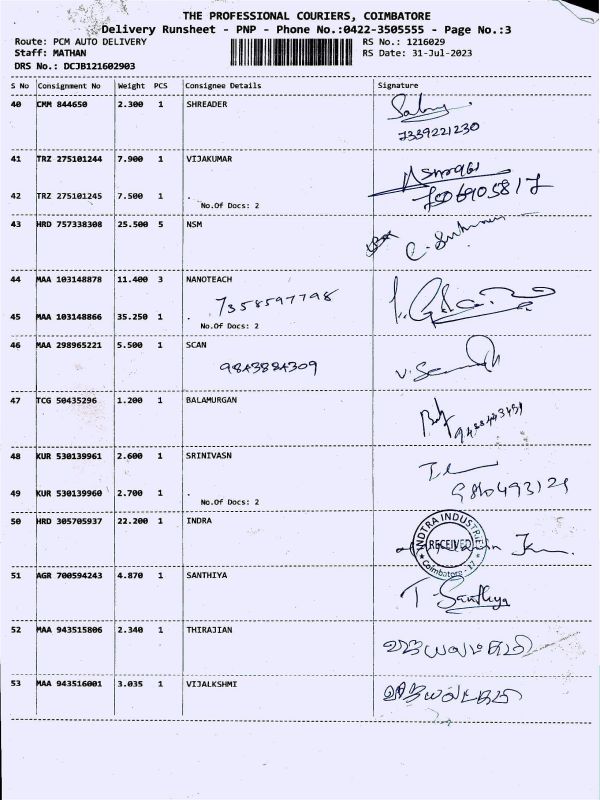 THE PROFESSIONAL COURIERS, COIMBATORE
Delivery Runsheet - PNP - Phone No.:0422-3505555 - Page No.:3
Route: PCM AUTO DELIVERY RS No.: 1216029
Staff: MATHAN RS Date: 31-Jul-2023
DRS No.: DCJB121602903
S No Consignment No Weight PCS Consignee Details Signature
40 CMM 844650 2.300 1 SHREADER
7339221230
41 TRZ 275101244 7.900 1 VIJAKUMAR
42 TRZ 275101245 7.500 1 .
No.Of Docs: 2
43 HRD 757338308 25.500 5 NSM
44 MAA 103148878 11.400 3 NANOTEACH
7358597798
45 MAA 103148866 35.250 1 .
No.Of Docs: 2
46 MAA 298965221 5.500 1 SCAN
9843884309
47 TCG 50435296 1.200 1 BALAMURGAN
48 KUR 530139961 2.600 1 SRINIVASN
49 KUR 530139960 2.700 1 .
No.Of Docs: 2
50 HRD 305705937 22.200 1 INDRA
INDTRA INDUSTRIES
RECEIVED
Coimbatore - 17
51 AGR 700594243 4.870 1 SANTHIYA
T Santhiya
52 MAA 943515806 2.340 1 THIRAJIAN
53 MAA 943516001 3.035 1 VIJALKSHMI